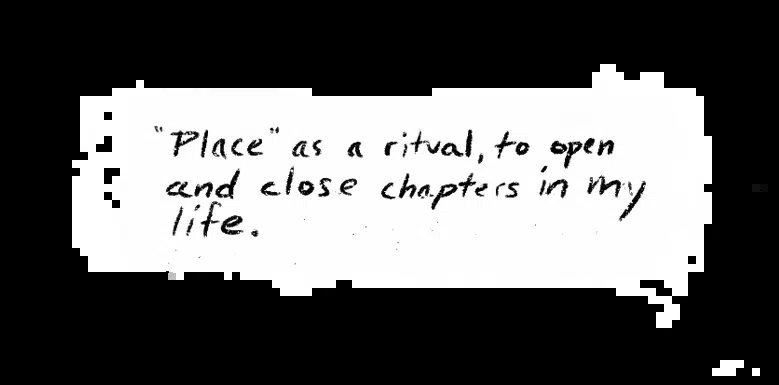 "Place" as a ritual, to open
and close chapters in my
life.